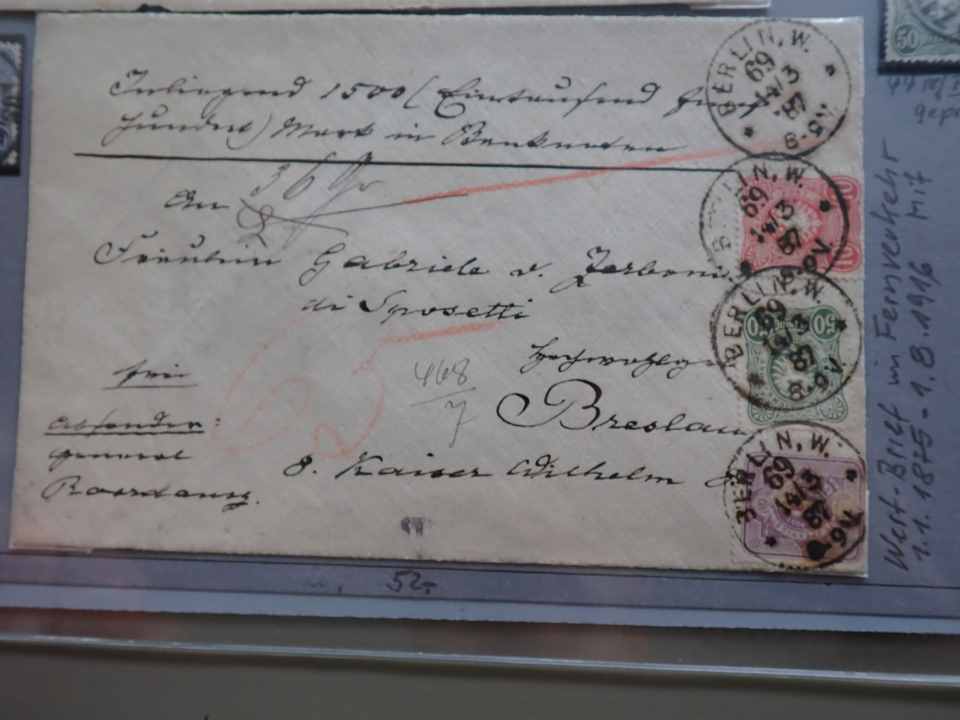 Inliegend 1500 (Eintausend fünf
hundert) Mark in Banknoten
36 Gr
An
Fräulein Gabriele v. Zerboni
di Sposetti
Hochwohlgeb
Breslau
8. Kaiser Wilhelm
frei
Absender:
General
468
7
52.-
BERLIN, W.
69
14/3
87
8-9V.
BERLIN, W.
69
14/3
87
8-9V.
BERLIN, W.
69
14/3
87
8-9V.
BERLIN, W.
69
14/3
87
8-9V.
10
10
50
50
50
Wert-Brief im Fernverkehr
1.1.1875-1.8.1916 Mit